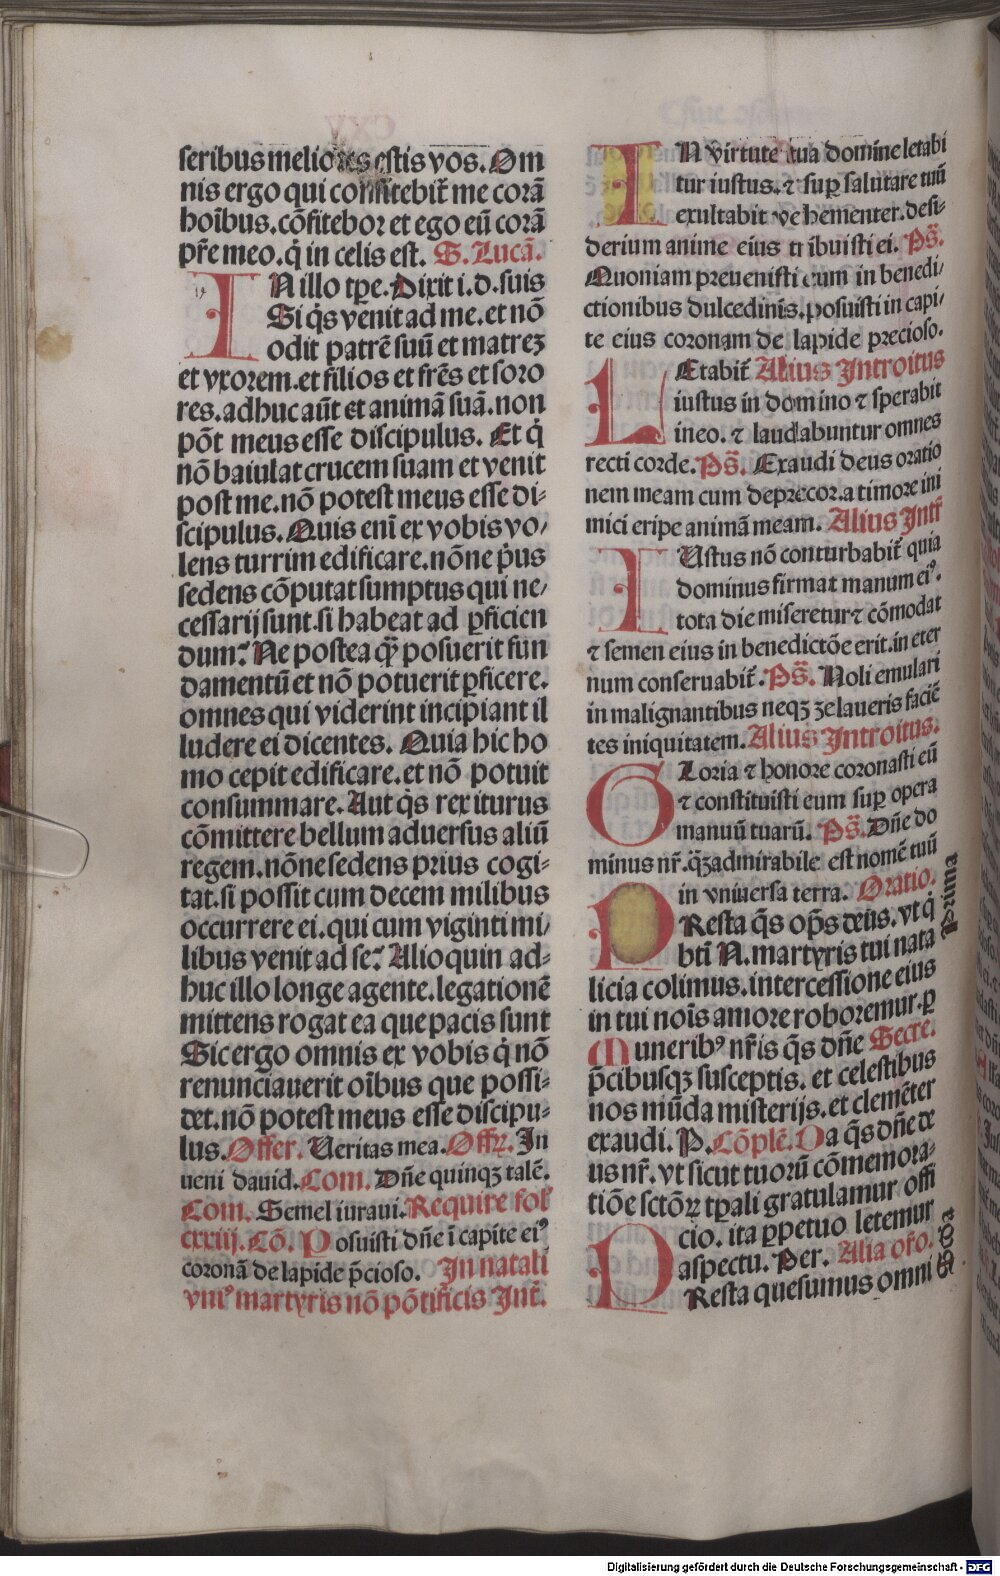 seribus meliores estis vos. Om
nis ergo qui confitebit᷑ me corā
hoībus. cōfitebor et ego eū corā
pr̄e meo. q̇ in celis est. S. Lucā.
IN illo tp̄e. Dixit i. d. suis
Si q̇s venit ad me. et nō
odit patrē suū et matreꝫ
et vxorem. et filios et fr̄es et soro
res. adhuc aūt et animā suā. non
pōt meus esse discipulus. Et q̇
nō baiulat crucem suam et venit
post me. nō potest meus esse di⸗
scipulus. Quis enī ex vobis vo/
lens turrim edificare. nōne p̄us
sedens cōputat sumptus qui ne/
cessarij sunt. si habeat ad ꝑficien
dum? Ne postea qꝫ̄ posuerit fun
damentū et nō potuerit ꝑficere.
omnes qui viderint incipiant il
ludere ei dicentes. Quia hic ho
mo cepit edificare. et nō potuit
consummare. Aut q̇s rex iturus
cōmittere bellum aduersus aliū
regem. nōne sedens prius cogi⸗
tat. si possit cum decem milibus
occurrere ei. qui cum viginti mi/
libus venit ad se? Alioquin ad⸗
huc illo longe agente. legationē
mittens rogat ea que pacis sunt
Sic ergo omnis ex vobis q̇ nō
renunciauerit oībus que possi⸗
det. nō potest meus esse discipu⸗
lus. Offer. Veritas mea. Offꝝ. In
ueni dauid. Com. Dn̄e quinqꝫ talē.
Com. Semel iuraui. Require fol'
cxxiij. Cō. Posuisti dn̄e ī capite ei⁹
coronā de lapide p̄cioso. In natali
vni⁹ martyris nō pōtificis Int᷑.
IN virtute tua domine letabi
tur iustus. ⁊ suꝑ salutare tuū
exultabit vehementer. desi⸗
derium anime eius tribuisti ei. Ps̄.
Quoniam preuenisti eum in benedi/
ctionibus dulcedinis. posuisti in capi/
te eius coronam de lapide precioso.
LEtabit᷑ Alius Introitus
iustus in domino ⁊ sperabit
in eo. ⁊ laudabuntur omnes
recti corde. Ps̄. Exaudi deus oratio
nem meam cum deprecor. a timore ini
mici eripe animā meam. Alius Int᷑
IUstus nō conturbabit᷑ quia
dominus firmat manum ei⁹.
tota die miseretur ⁊ cōmodat
⁊ semen eius in benedictōe erit. in eter
num conseruabit᷑. Ps̄. Noli emulari
in malignantibus neqꝫ zelaueris faciē
tes iniquitatem. Alius Introitus.
GLoria ⁊ honore coronasti eū
⁊ constituisti eum suꝑ opera
manuū tuarū. Ps̄. Dn̄e do
minus nr̄. qꝫ admirabile est nomē tuū
in vniuersa terra. Oratio.
PResta q̄s op̄s deus. vt q̇
bt̄i N. martyris tui nata
licia colimus. intercessione eius
in tui noīs amore roboremur. ꝑ
Munerib⁹ nr̄is q̄s dn̄e Secre.
p̄cibusqꝫ susceptis. et celestibus
nos mūda misterijs. et clemēter
exaudi. P. Cōplē. Da q̄s dn̄e de
us nr̄. vt sicut tuorū cōmemora⸗
tiōe sctōꝝ tꝑali gratulamur offi
cio. ita ꝑpetuo letemur
aspectu. Per. Alia or̄o.
PResta quesumus omni
Prima
Scd̄a
Digitalisierung gefördert durch die Deutsche Forschungsgemeinschaft - DFG